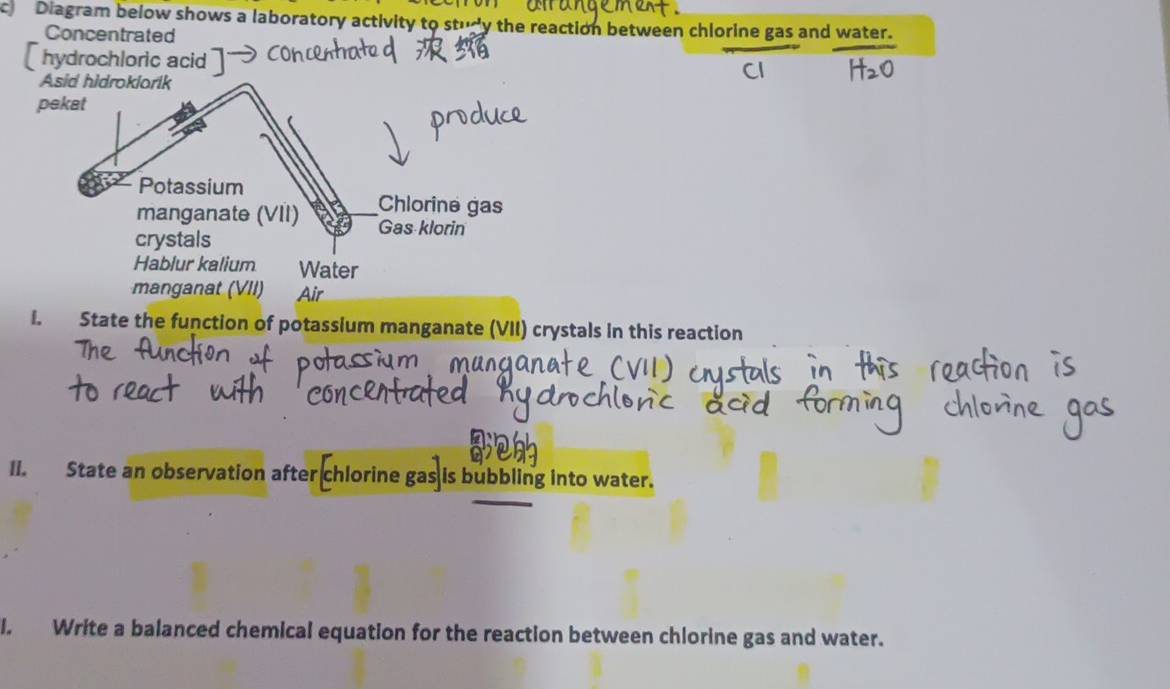 arrangement.
c) Diagram below shows a laboratory activity to study the reaction between chlorine gas and water.
Concentrated
[hydrochloric acid] → concentrated 浓缩
Cl H₂O
Asid hidroklorik
pekat
produce
Potassium
manganate (VII)
crystals
Hablur kalium
manganat (VII)
Chlorine gas
Gas klorin
Water
Air
I. State the function of potassium manganate (VII) crystals in this reaction
The function of potassium manganate (VII) crystals in this reaction is
to react with concentrated hydrochloric acid forming chlorine gas
冒泡的
II. State an observation after [chlorine gas] is bubbling into water.
I. Write a balanced chemical equation for the reaction between chlorine gas and water.